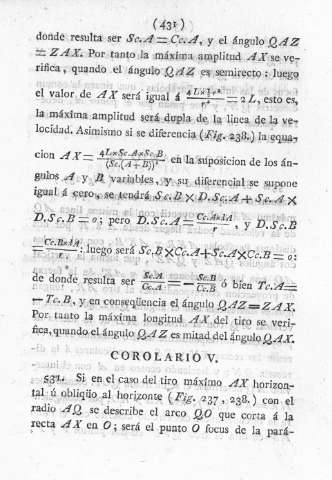 (431)
donde resulta ser Sc.A = Cc.A, y el ángulo QAZ
= ZAX. Por tanto la máxima amplitud AX se ve-
rifica, quando el ángulo QAZ es semirecto: luego
el valor de AX será igual á 4L×½r²/r² = 2L, esto es,
la máxima amplitud será dupla de la línea de la ve-
locidad. Asimismo si se diferencia (Fig. 238.) la equa-
cion AX = 4L×Sc.A×Sc.B/(Sc.(A+B))² en la suposicion de los án-
gulos A y B variables, y su diferencial se supone
igual á cero, se tendrá Sc.B × D.Sc.A + Sc.A ×
D.Sc.B = 0; pero D.Sc.A = Cc.A×dA/r, y D.Sc.B
= Cc.B×dA/r: luego será Sc.B×Cc.A+Sc.A×Cc.B = 0:
de donde resulta ser Sc.A/Cc.A = −Sc.B/Cc.B ó bien Tc.A=
−Tc.B, y en conseqüencia el ángulo QAZ=ZAX.
Por tanto la máxima longitud AX del tiro se veri-
fica, quando el ángulo QAZ es mitad del ángulo QAX.
COROLARIO V.
531. Si en el caso del tiro máximo AX horizon-
tal ú obliqüo al horizonte (Fig. 237, 238.) con el
radio AQ se describe el arco QO que corta á la
recta AX en O; será el punto O focus de la pará-